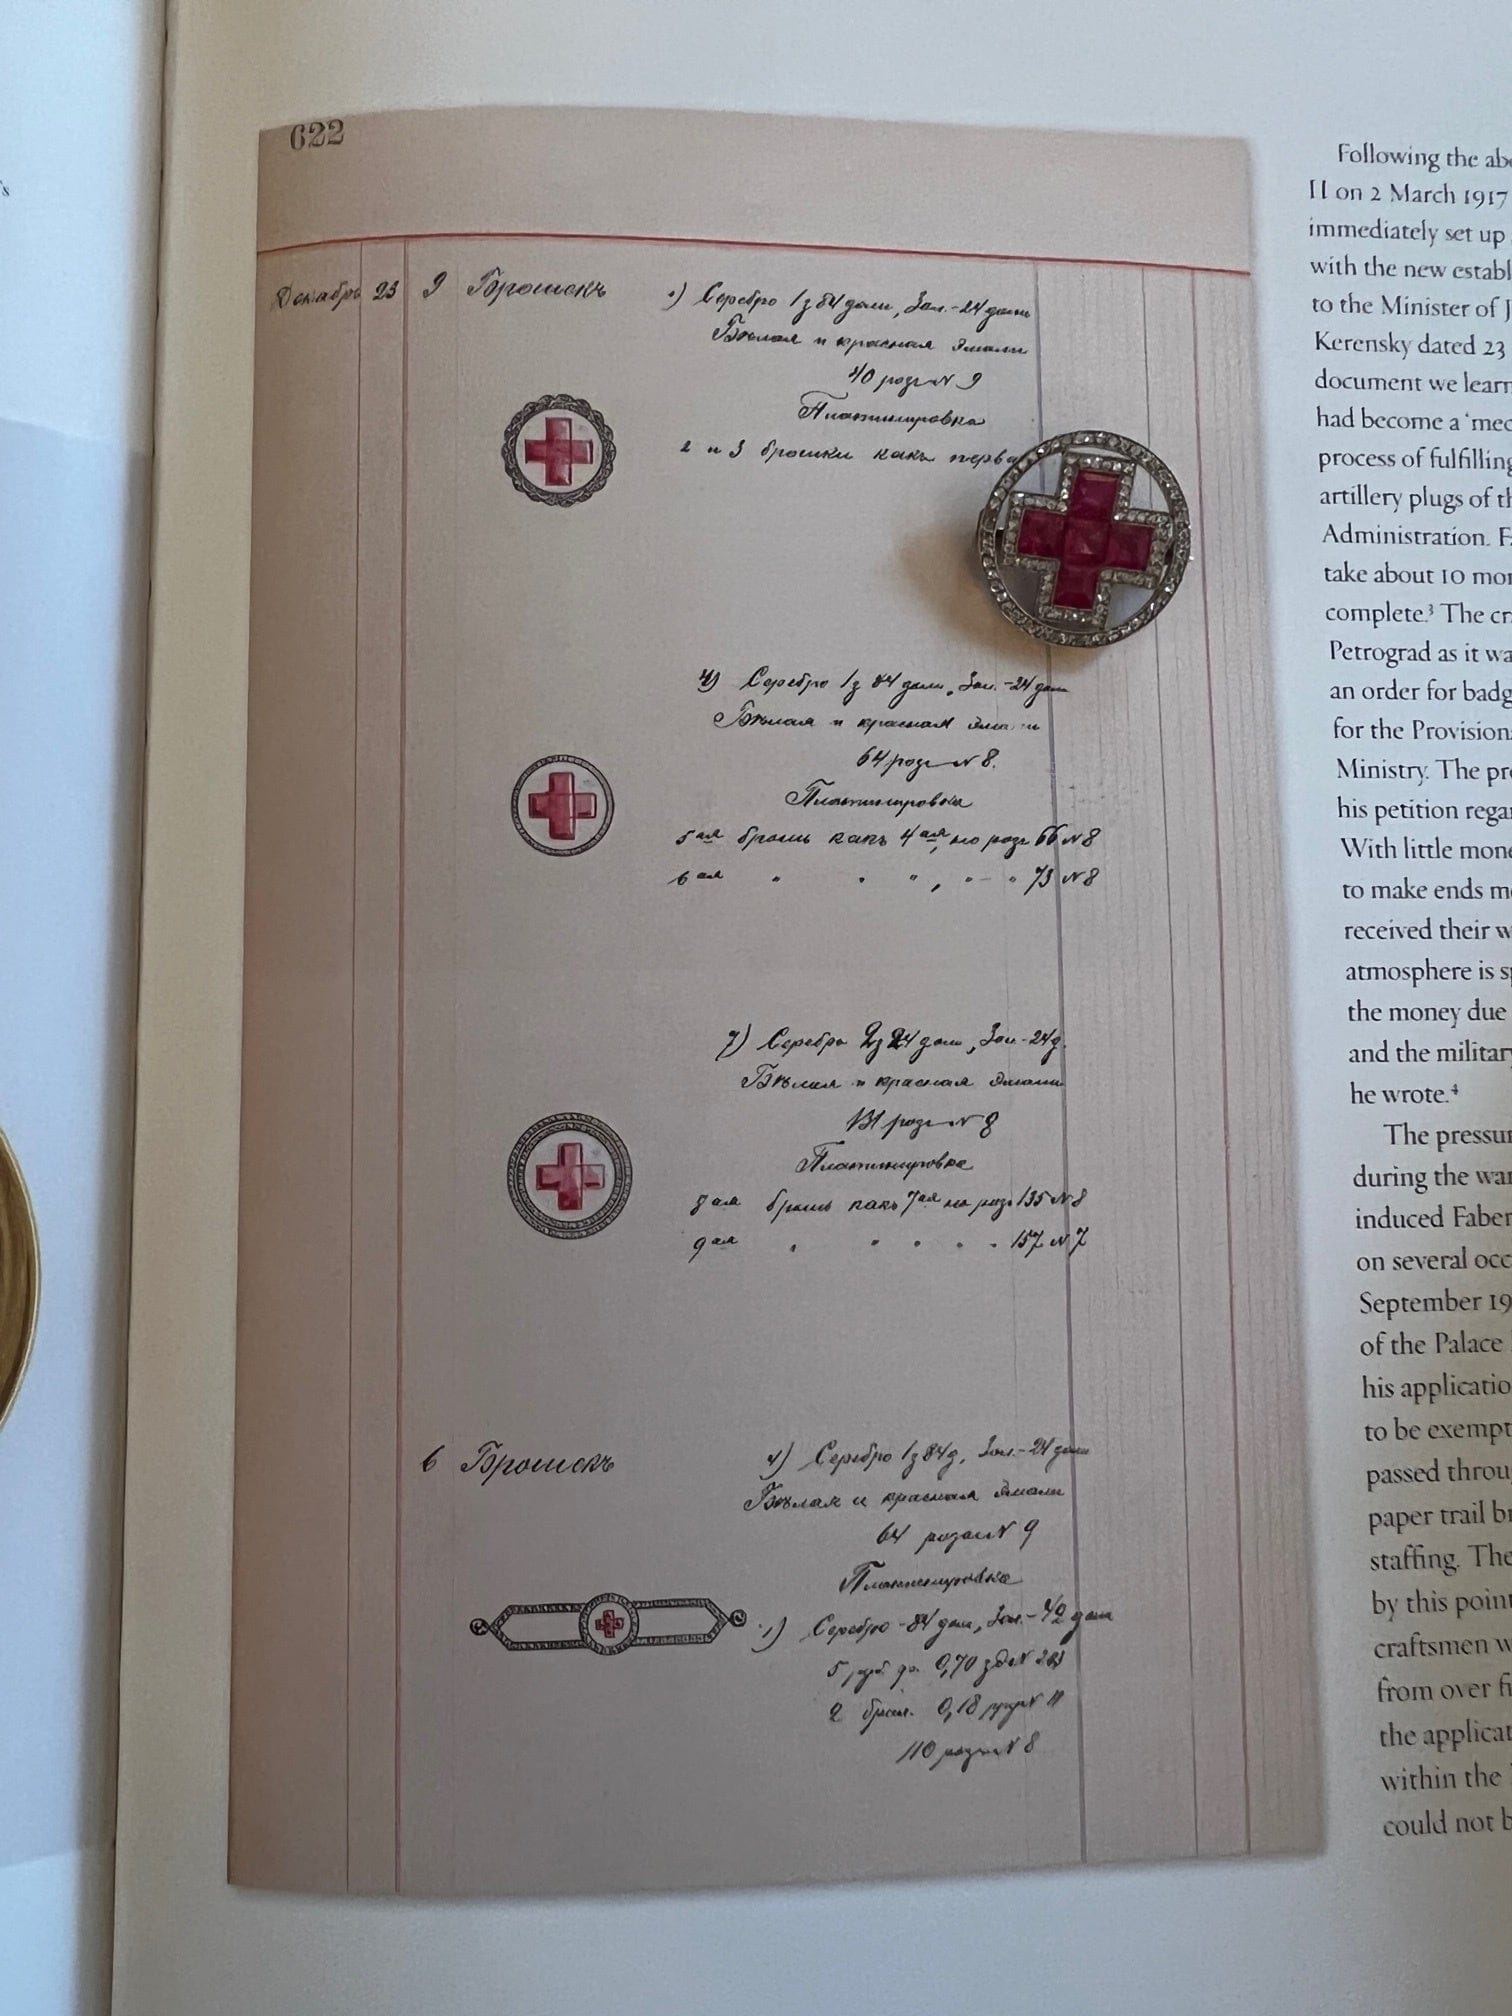 622
Декабрь 23 9 Брошекъ 1) Серебро 1з 84 доли, Зол. - 24 доли
Бѣлая и красная эмали
40 роз N 9
Платинировка
2 и 3 брошки какъ перва
4) Серебро 1з 84 доли, Зол. - 24 доли
Бѣлая и красная
64 роз N 8.
Платинировка
5ая брошь какъ 4ая, но розъ 66 N 8
6ая " " " , " - " 73 N 8
7) Серебро 2з 24 доли, Зол. - 24 д.
Бѣлая и красная эмали
131 роз N 8
Платинировка
8ая брошь какъ 7ая но розъ 135 N 8
9ая " " " " " 157 N 7
6 Брошекъ 1) Серебро 1з 84 д, Зол. - 24 доли
Бѣлая и красная эмали
64 розы N 9
Платинировка
Серебро - 84 доли, Зол. - 42 доли
5 0,70
2 брил. 0,18 N 11
110 N 8
Following the
II on 2 March 1917
immediately set up
with the new
to the Minister of
Kerensky dated 23
document we
had become a
process of fulfilling
artillery plugs of
Administration.
take about 10
complete.³ The
Petrograd as it
an order for
for the
Ministry. The
his petition
With little
to make ends
received their
atmosphere is
the money due
and the
he wrote.⁴
The
during the
induced
on several
September
of the Palace
his
to be exempt
passed
paper trail
staffing. The
by this point
craftsmen
from over
the
within the
could not